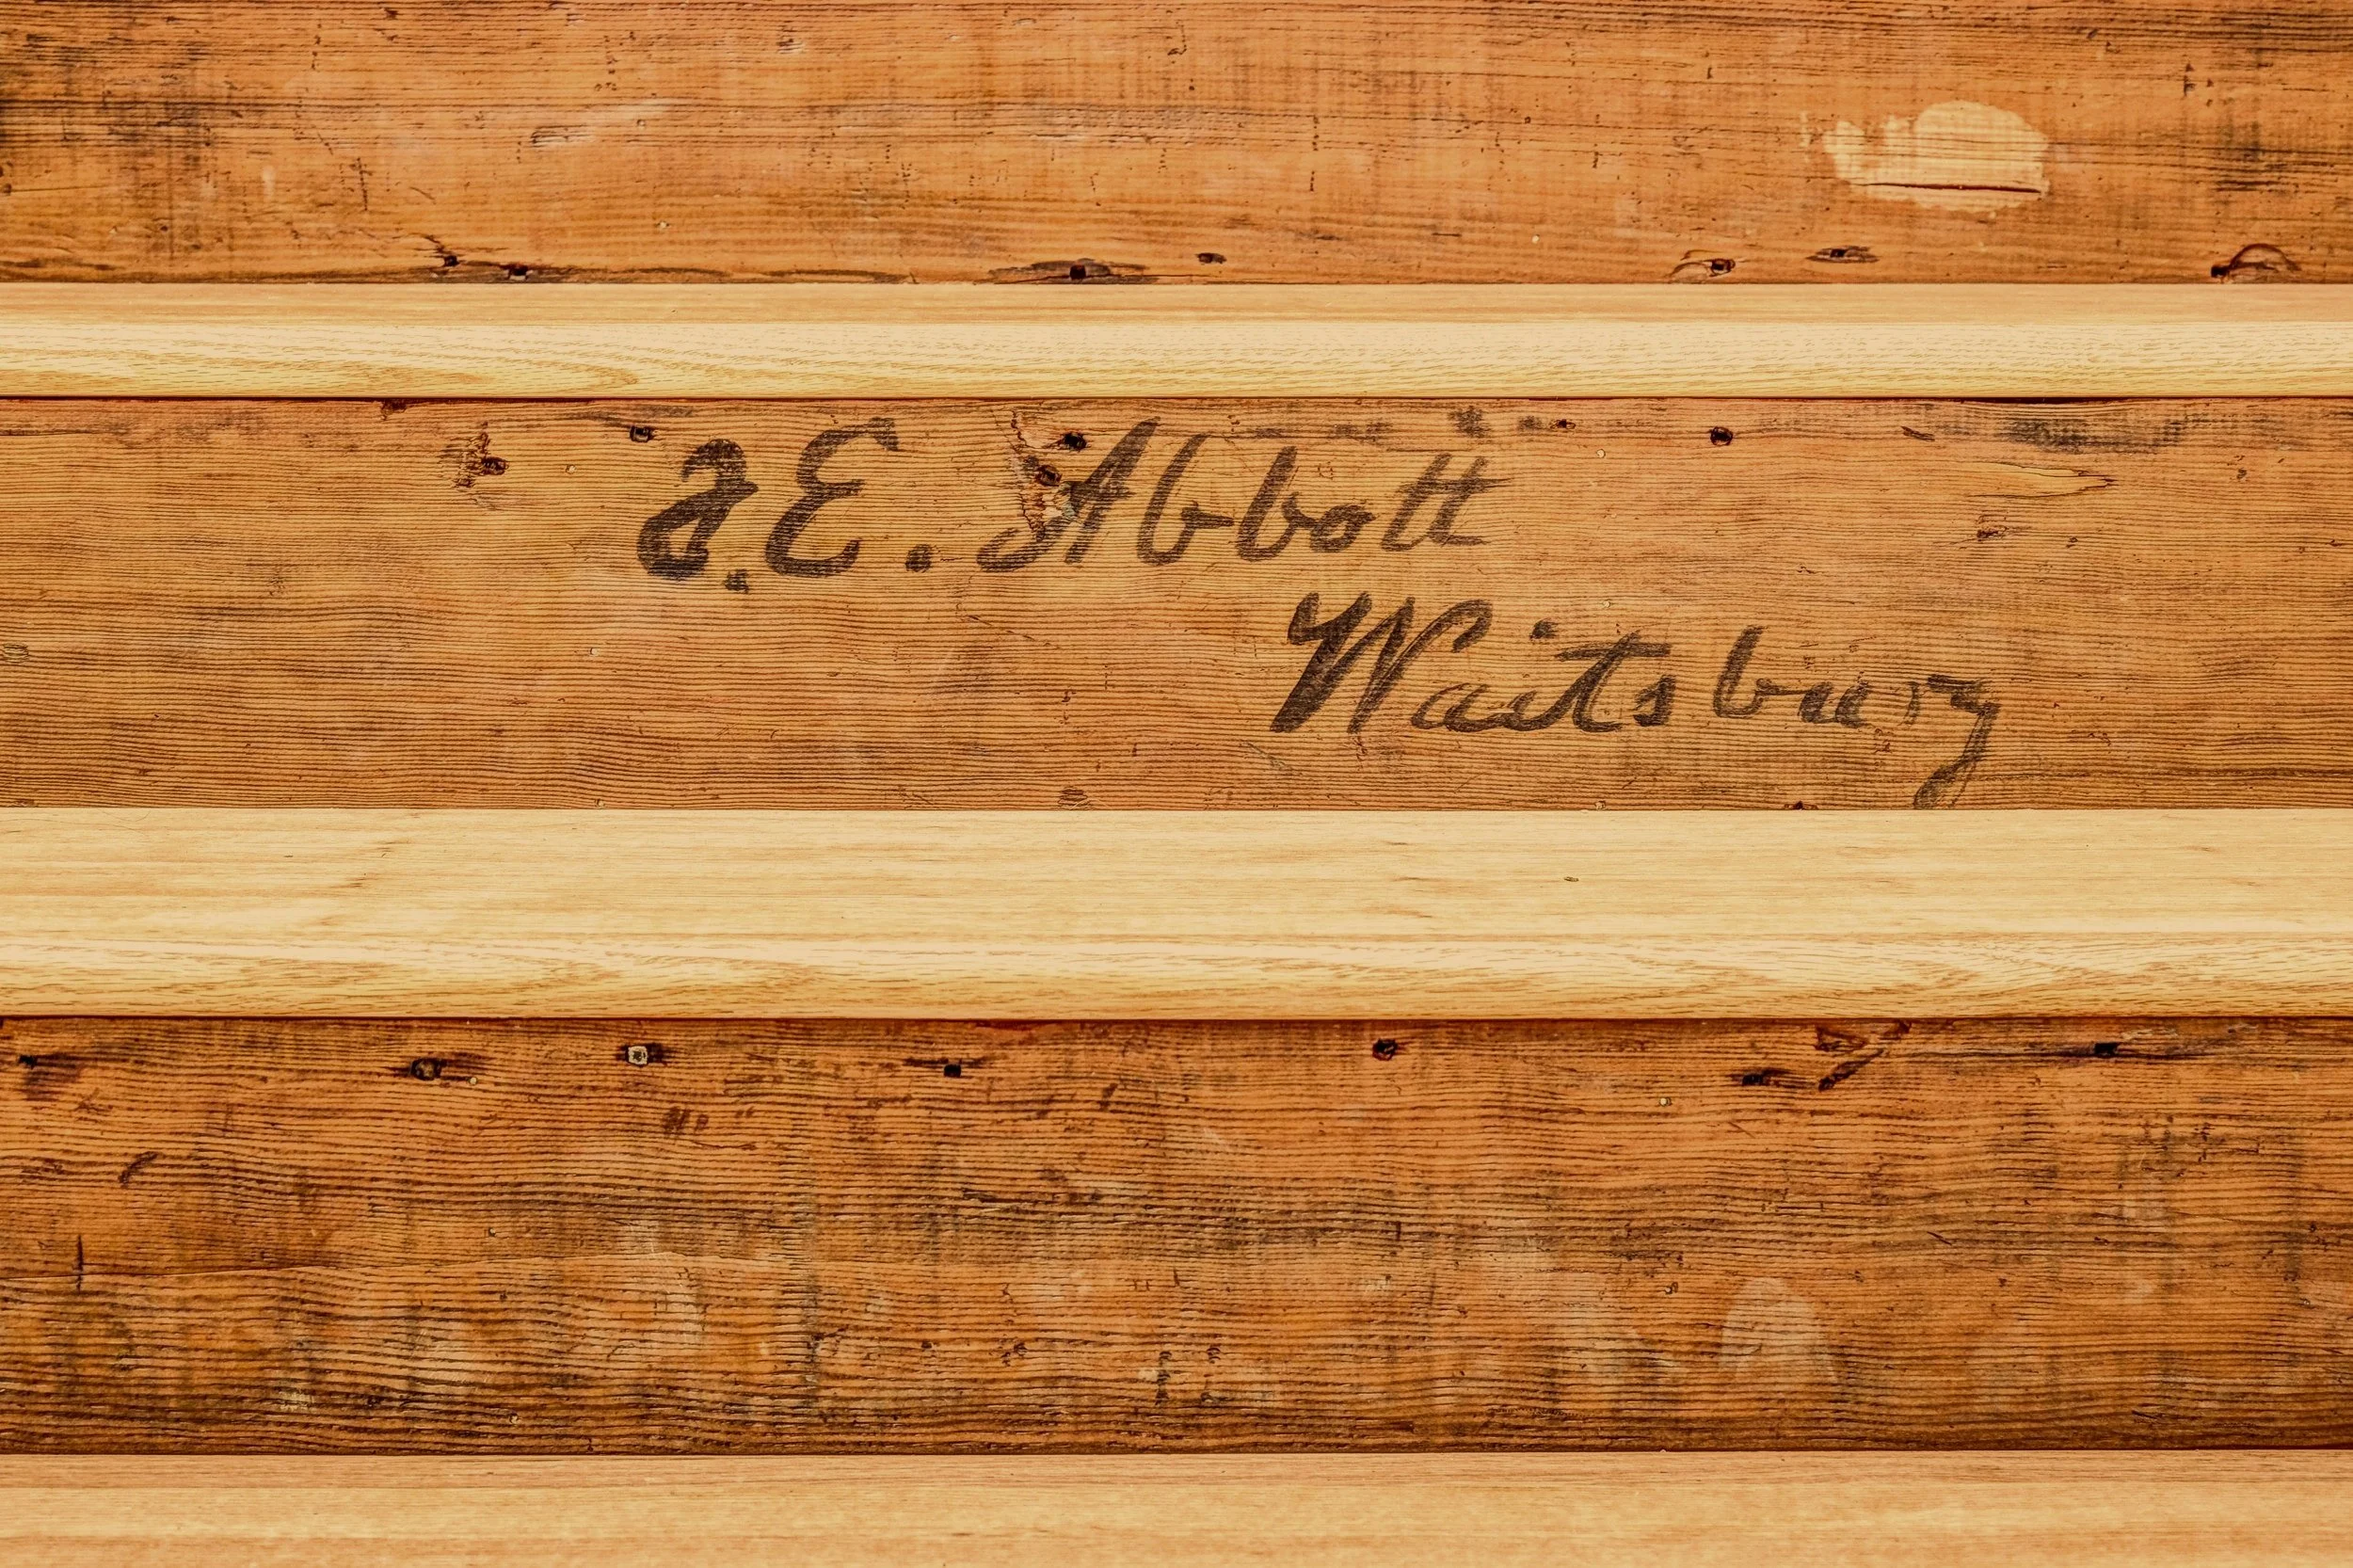 J.E. Abbott
Waitsbury